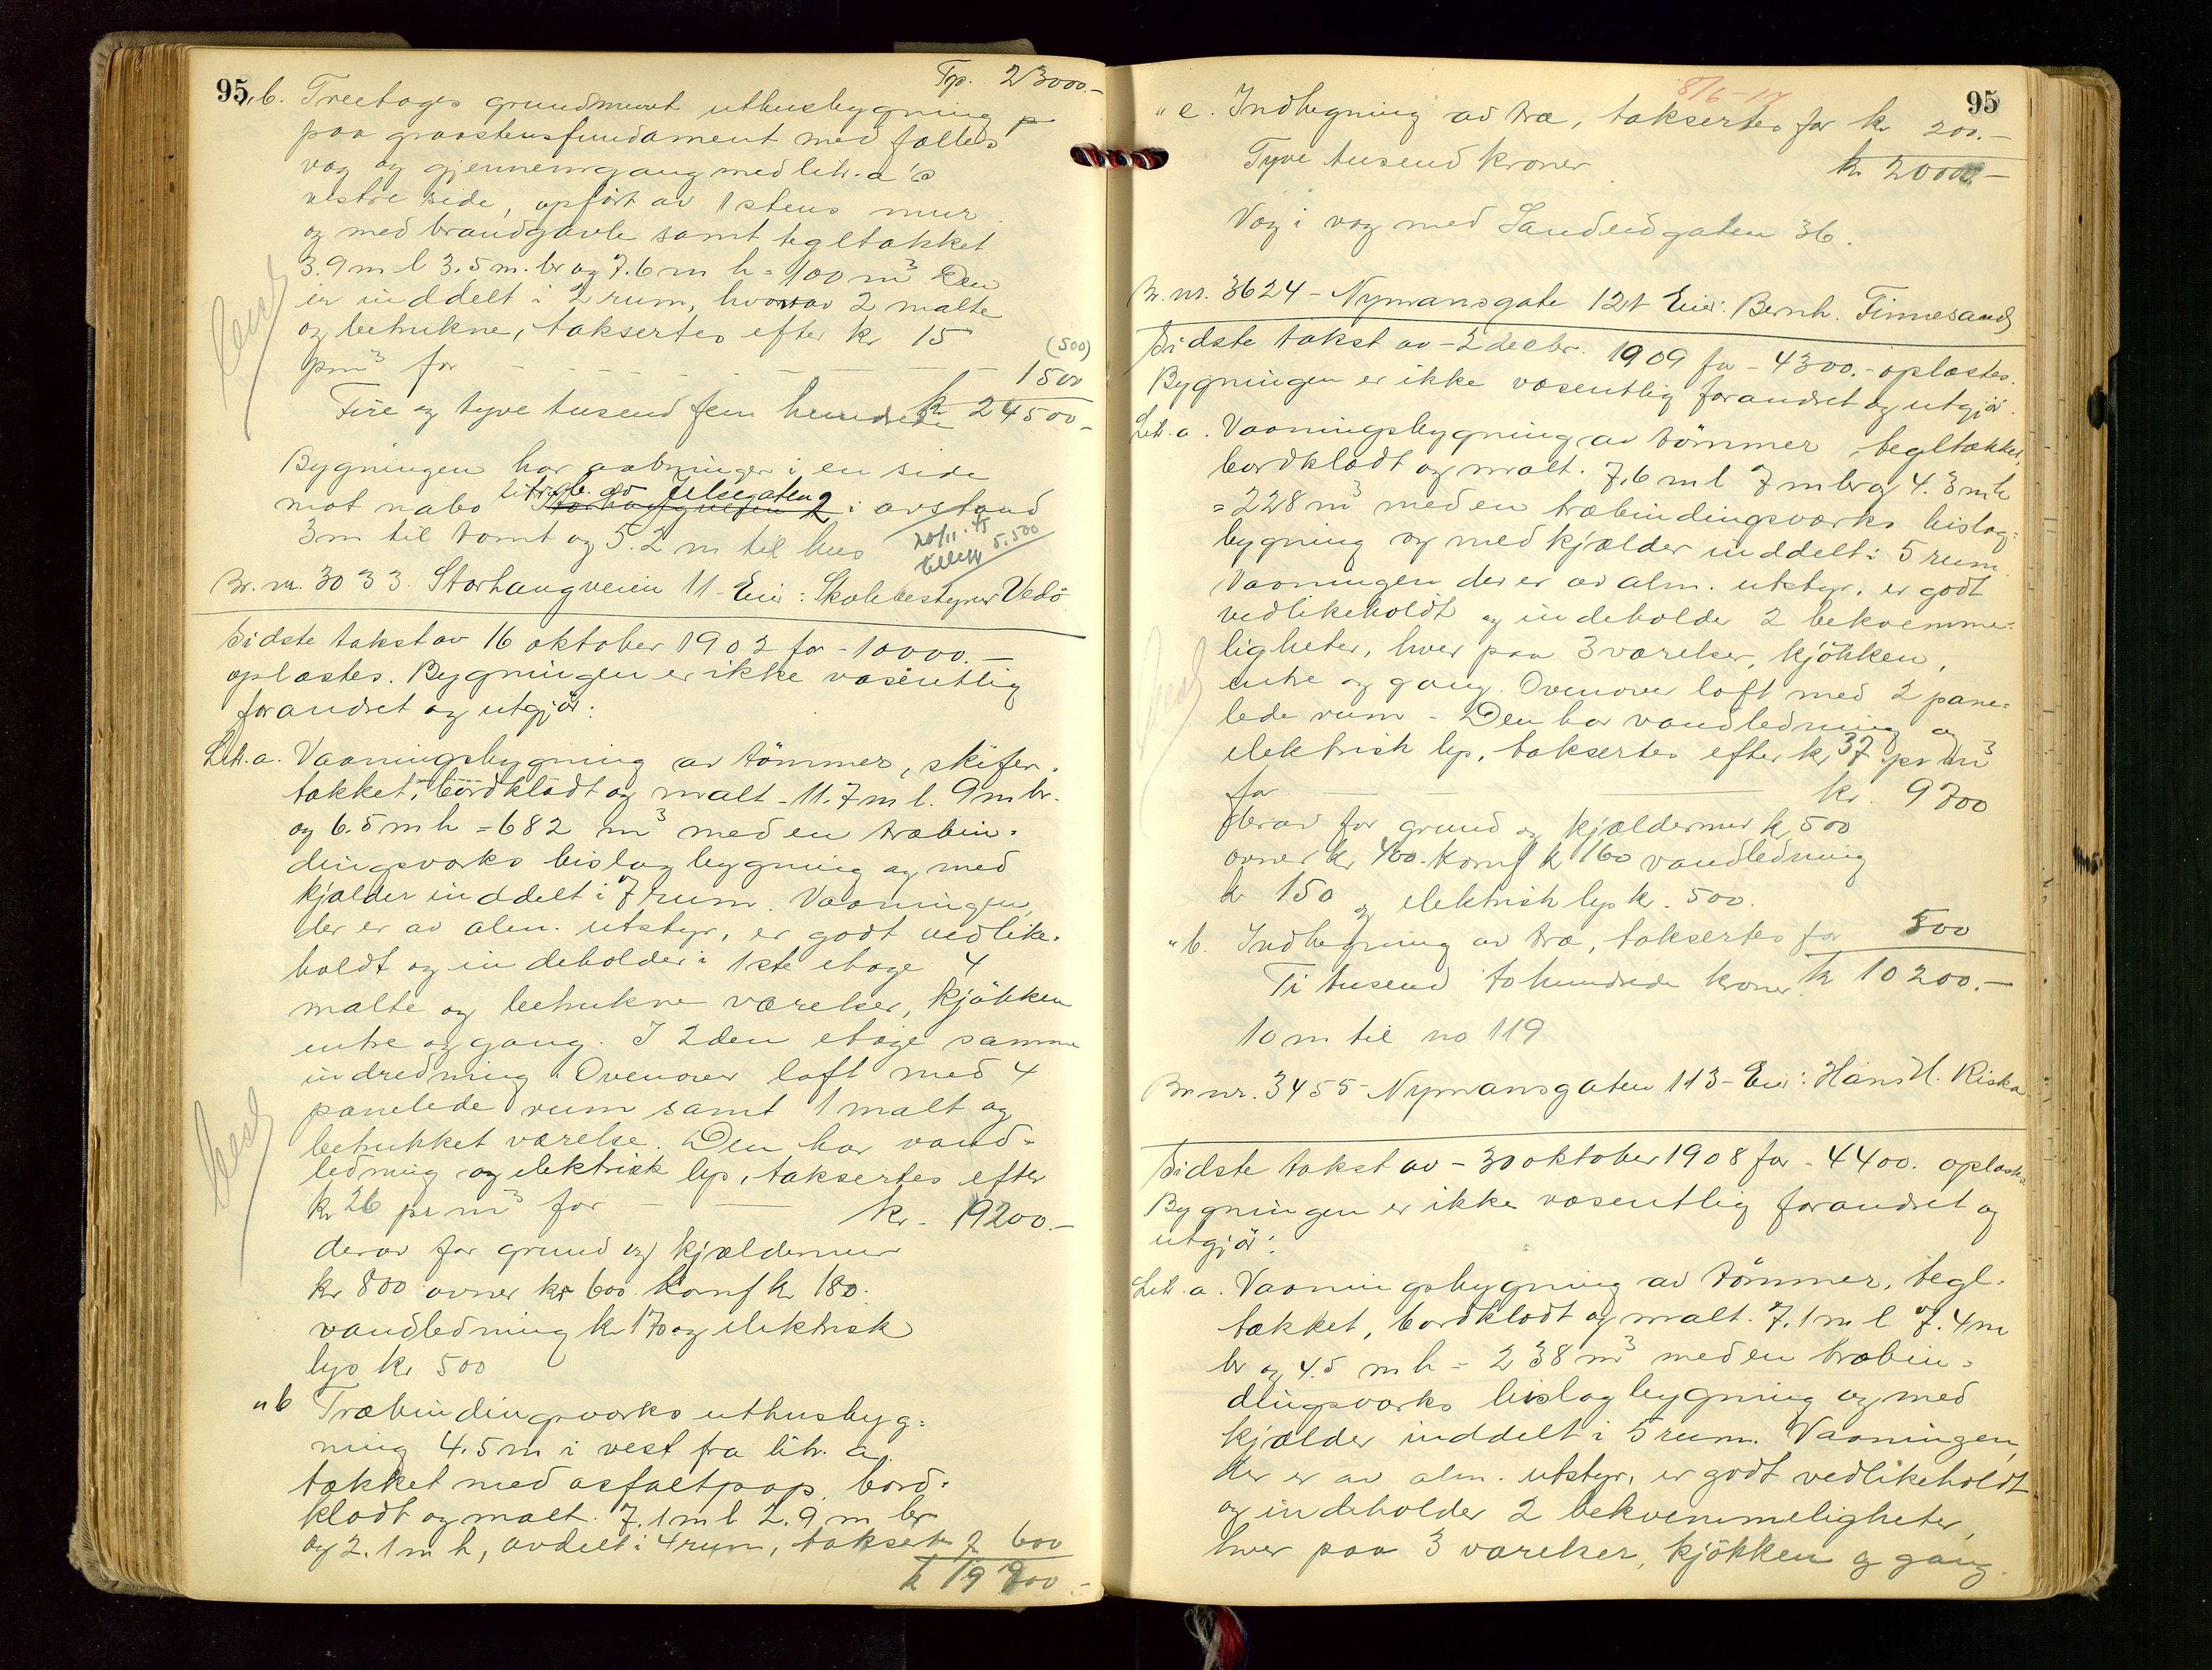 95
Trp. 23000.-
" b. Treetages grundmuret uthusbygning
paa graastensfundament med fælles
væg og gjennemgang med litr. a's
vestre side, opført av 1 stens mur
og med brandgavle samt tegltækket
3.9 m l 3.5 m. br og 7.6 m h = 100 m³ Den
er inddelt i 2 rum, hvorav 2 malte
og betrukne, taksertes efter kr 15
pr m³ for - - - - - - 1500
(500)
Fire og tyve tusend fem hundrede kr 24500-
Bygningen har aabninger i en side
litr. b. av Jelsegaten 2
mot nabo Storhaugveien 2 i avstand
3 m til tomt og 5.2 m til hus
20/11.45
Tillegg 5.500
Br. nr. 3033. Storhaugveien 11 - Eier: Skolebestyrer Vedø
Sidste takst av 16 oktober 1902 for - 10000.-
oplæstes. Bygningen er ikke væsentlig
forandret og utgjør:
Litr. a. Vaaningsbygning av tømmer, skifer-
tækket, bordklædt og malt - 11.7 m l. 9 m br.
og 6.5 m h = 682 m³ med en træbin-
dingsværks bislagbygning og med
kjælder inddelt i 7 rum. Vaaningen,
der er av alm. utstyr, er godt vedlike-
holdt og indeholder i 1ste etage 4
malte og betrukne værelser, kjøkken
entre og gang. I 2den etage samme
indredning. Ovenover loft med 4
panelede rum samt 1 malt og
betrukket værelse. Den har vand-
ledning og elektrisk lys, taksertes efter
kr 26 pr m³ for - - kr. 19200.-
derav for grund og kjældermur
kr 800 ovner kr 600. Komf kr 180.
vandledning kr 170 og elektrisk
lys kr 500
" b Træbindingsværks uthusbyg-
ning 4.5 m i vest fra litr. a
tækket med asfaltpap, bord-
klædt og malt. 7.1 m l 2.9 m br
og 2.1 m h, avdelt i 4 rum, taksert for 600
kr 19800.-
95
8/6-17
" c. Indhegning av træ, taksertes for kr 200.-
Tyve tusend kroner kr 20000-
Væg i væg med Sandeidgaten 36.
Br. nr. 3624 - Nymansgate 121 Eier: Bernh. Finnesand
Sidste takst av - 2 decbr. 1909 for - 4300.- oplæstes.
Bygningen er ikke væsentlig forandret og utgjør.
Litr. a. Vaaningsbygning av tømmer, tegltækket,
bordklædt og malt. 7.6 m l 7 m br og 4.3 m h
= 228 m³ med en træbindingsværks bislag-
bygning og med kjælder inddelt i 5 rum.
Vaaningen der er av alm. utstyr, er godt
vedlikeholdt og indeholder 2 bekvemme-
ligheter, hver paa 3 værelser, kjøkken,
entre og gang. Ovenover loft med 2 pane-
lede rum - Den har vandledning og
elektrisk lys, taksertes efter kr 37 pr m³
for - - kr. 9700
derav for grund og kjældermur kr 500
ovner kr 400. Komf kr 160 vandledning
kr 150 og elektrisk lys kr. 500.
" b. Indhegning av træ, taksertes for 500
Ti tusend to hundrede kroner kr 10200.-
10 m til no 119
Br. nr. 3455 - Nymansgaten 113 - Eier: Hans H. Riska
Sidste takst av - 30 oktober 1908 for - 4400. oplæstes
Bygningen er ikke væsentlig forandret og
utgjør:
Litr. a. Vaaningsbygning av tømmer, tegl-
tækket, bordklædt og malt. 7.1 m l 7.4 m
br og 4.5 m h = 238 m³ med en træbin-
dingsværks bislagbygning og med
kjælder inddelt i 5 rum. Vaaningen,
der er av alm. utstyr, er godt vedlikeholdt
og indeholder 2 bekvemmeligheter,
hver paa 3 værelser, kjøkken og gang.